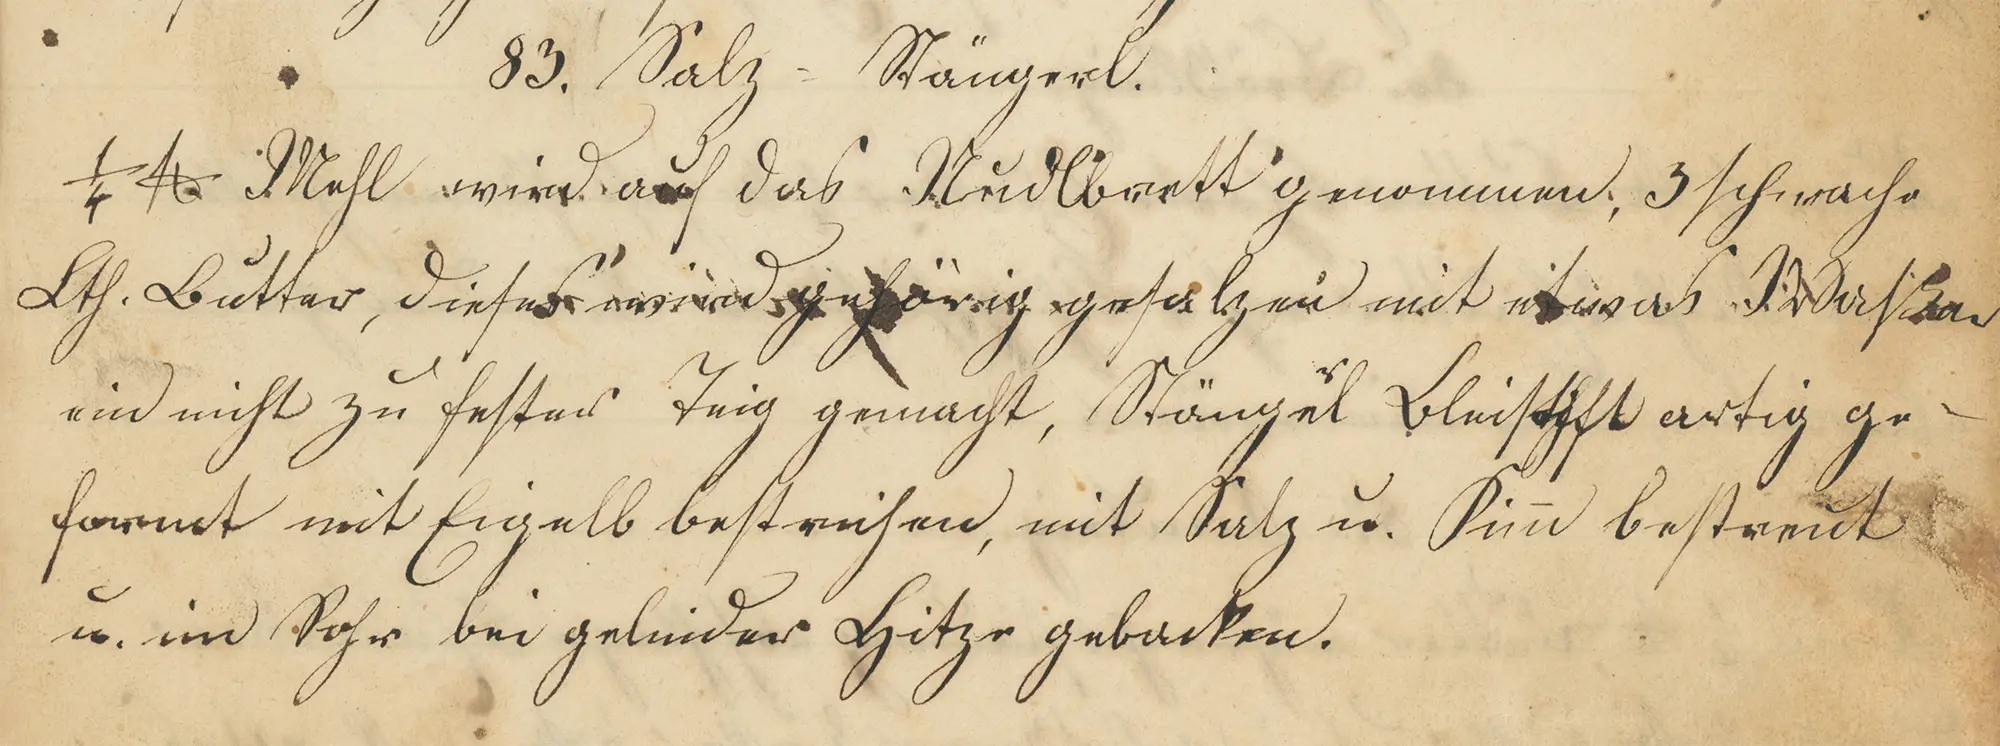 83. Salz-Stängerl.
1/4 ℔ Mehl wird auf das Nudlbrett genommen, 3 schwache
Lth. Butter, dieses wird gehörig gesalzen mit etwas Wasser
ein nicht zu fester Teig gemacht, Stängerl Bleistift artig ge-
formt mit Eigelb bestrichen, mit Salz u. Kim̅ bestreut
u. im Rohr bei gelinder Hitze gebacken.